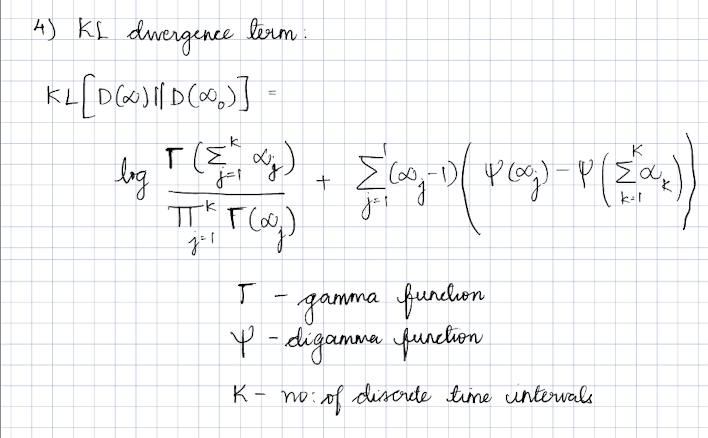 4) KL divergence term:
KL[D(∝)||D(∝₀)] =
log Γ(∑_{j=1}^{K} ∝_j) / ∏_{j=1}^{K} Γ(∝_j) + ∑_{j=1}^{1} (∝_j-1)(Ψ(∝_j) - Ψ(∑_{k=1}^{K} ∝_k))
Γ - gamma function
Ψ - digamma function
K - no: of discrete time intervals